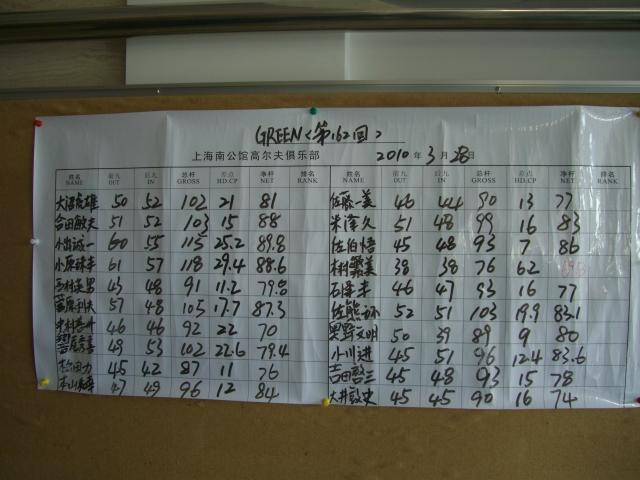 GREEN<第162回>
上海南公馆高尔夫俱乐部 2010年3月28日
姓名 前九 后九 总杆 差点 净杆 排名 姓名 前九 后九 总杆 差点 净杆 排名
NAME OUT IN GROSS HD.CP NET RANK NAME OUT IN GROSS HD.CP NET RANK
50 52 102 21 81 佐藤一美 46 44 90 13 77
合田敏夫 51 52 103 15 88 米澤久 51 48 99 16 83
小出誠一 60 55 115 25.2 89.8 佐伯悟 45 48 93 7 86
61 57 118 29.4 88.6 木村繁美 38 38 76 62
43 48 91 11.2 79.8 石澤孝 46 47 93 16 77
57 48 105 17.7 87.3 佐熊 52 51 103 19.9 83.1
46 46 92 22 70 奥野文明 50 39 89 9 80
49 53 102 22.6 79.4 小川进 45 51 96 12.4 83.6
松田力 45 42 87 11 76 吉田啓三 45 48 93 15 78
47 49 96 12 84 大井敦史 45 45 90 16 74